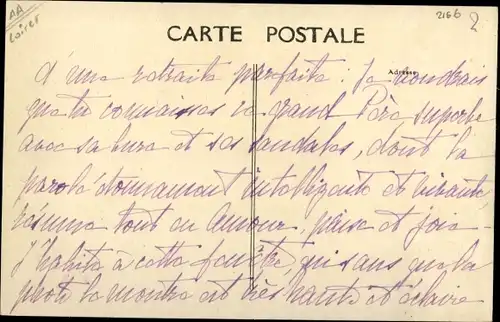 AA
Loiret
2166
2
CARTE POSTALE
Adresse
d'une retraite parfaite : Je voudrais
que tu connaisses ce grand Père superbe
avec sa bure et ses sandales, dont la
parole étonnamment intelligente et vivante,
résume tout en Amour, paix et joie -
J'habite à cette fenêtre, qui sans que la
photo la montre est très haute et éclaire